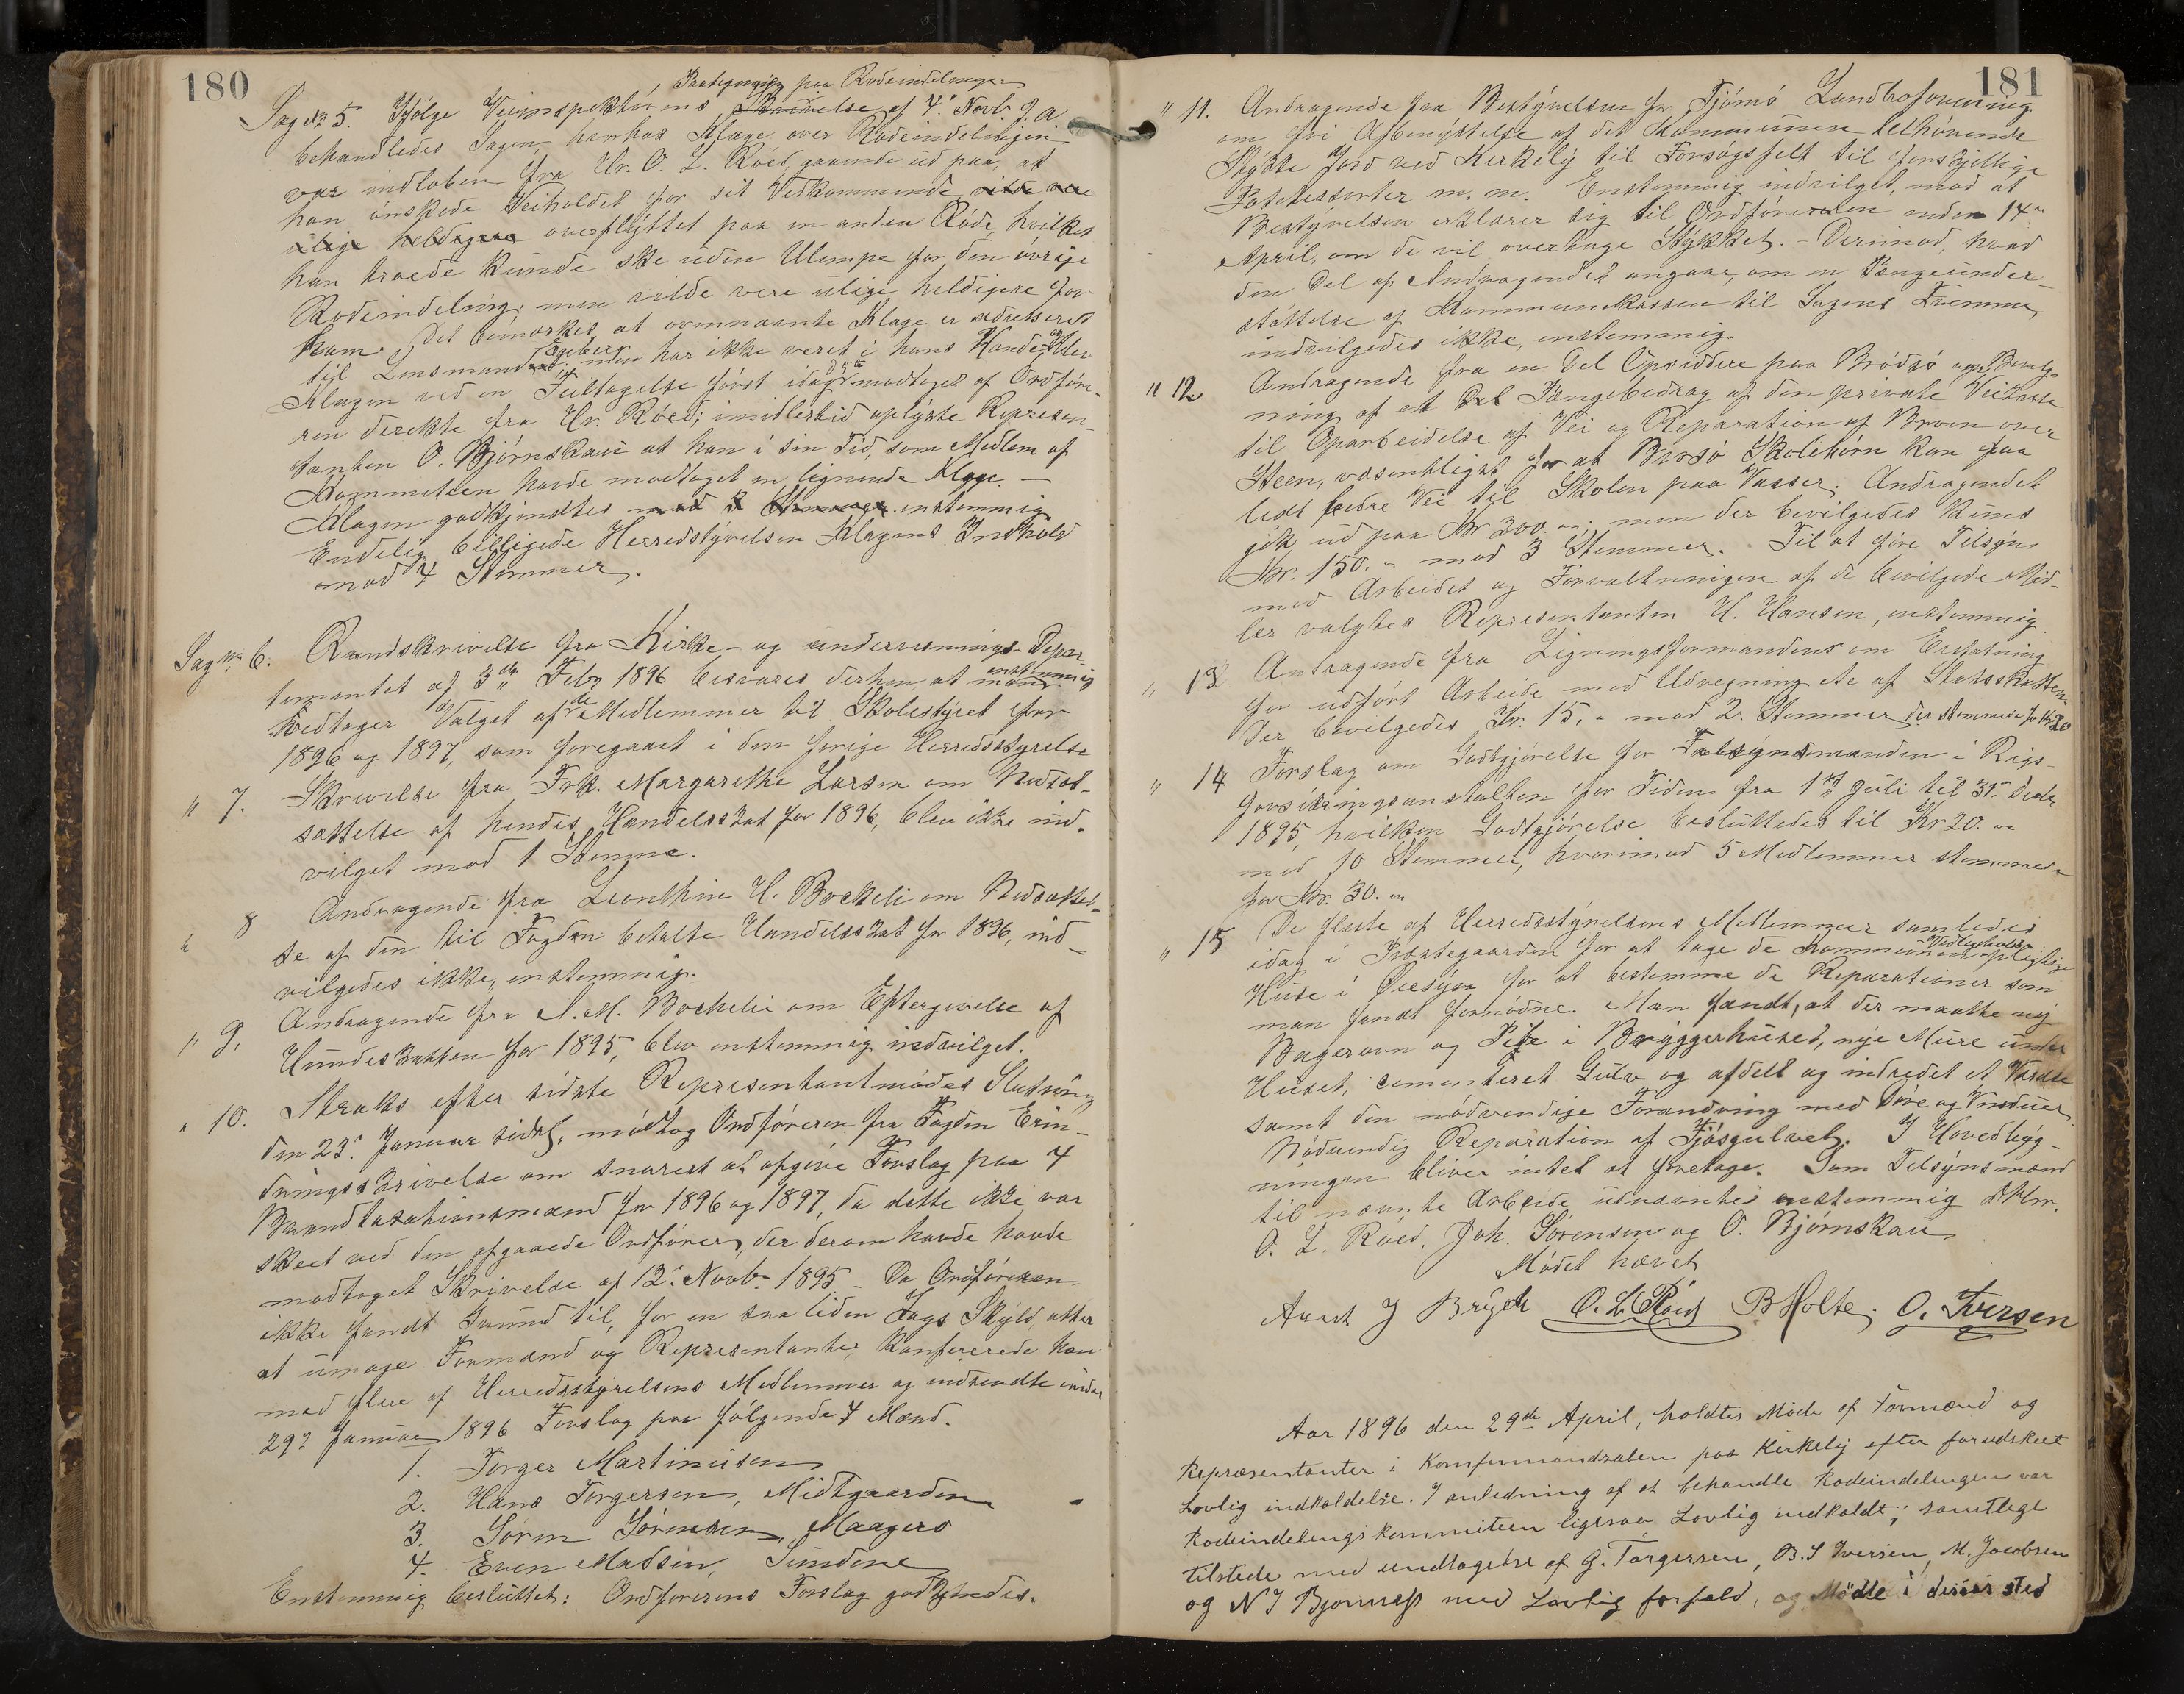 180
Paategning paa Rodeindelingen
Sag No 5. Ifölge Veiinspektörens Skrivelse af 4' Novb. f. a
behandledes Sagen, hvorhos Klage over Rodeindelingen
var indloben fra Hr. O. L. Röed, gaaende ud paa, at
han önskede Veiholdet for sit Vedkommende vilde være
ulige heldigere overflyttet paa en anden Rode, hvilket
han troede kunde ske uden Ulempe for den övrige
Rodeindeling; men vilde være ulige heldigere for
ham. Det bemærkes, at ovennævnte Klage er adresseret
til Lensmanden, men har ikke været i hans Hænder,
Klagen ved en Feiltagelse först idag modtaget af Ordföre-
ren derekte fra Hr. Röed; imidlertid oplyste Represen-
tanten O. Björnskau at han i sin Tid, som Medlem af
Kommitteen havde modtaget en lignende Klage. —
Klagen godkjendtes mod 3 Stemmer enstemmig
Endelig billigede Herredstyrelsen Klagens Indhold
mod 4 Stemmer.
Sag No 6. Rundskrivelse fra Kirke- og undervisnings-Depar-
temantet af 3die Febr 1896 besvares derhen at man enstemmig
vedtager Valget af de Medlemmer til Skolestyret for
1896 og 1897, som foregaaet i den forige Herredsstyrelse
" 7. Skrivelse fra Frk. Margarethe Larsen om Nedsæt-
sættelse af hendes Handelsskat for 1896, blev ikke ind-
vilget mod 1 Stemme.
" 8 Andragende fra Leonthine H. Bockeli om Nedsættel-
se af den til Fogden betalte Handelsskat for 1896, ind-
vilgedes ikke, enstemmig.
" 9. Andragende fra A. M. Bockelie om Eftergivelse af
Hundeskatten for 1895, blev enstemmig indvilget.
" 10. Straks efter sidste Representantmödes Slutning
den 23' Januar sidstl. modtog Ordföreren fra Fogden Erin-
dringsskrivelse om snarest at afgive Forslag paa 4
Brandtaxationsmænd for 1896 og 1897, da dette ikke var
skeet ved den afgaaede Ordförer, der derom havde havde
modtaget Skrivelse af 12' Novbr 1895 - Da Ordföreren
ikke fandt Grund til, for en saa liden Sags Skyld, atter
at umage Formænd og Representanter, konfererede han
med flere af Herredsstyrelsens Medlemmer og indsendte under
29' Januar 1896 Forslag paa fölgende 4 Mænd.
1. Torger Martinusen
2. Hans Torgersen, Midtgaarden
3. Sören Sörensen, Maagerö
4. Even Madsen, Sundene
Enstemmig besluttet: Ordförerens Forslag godkjendes.
181
" 11. Andragende fra Bestyrelsen for Tjömö Landboforening
om fri Afbenyttelse af det Kommunen tilhörende
Stykke Jord ved Kirkely til Forsögsfelt til forskjellige
Potetessorter m. m. Enstemmig indvilget, mod at
Bestyrelsen erklærer sig til Ordföreren inden 14de
April, om de vil overtage Stykket. - Derimod, hvad
den Del af Andragendet angaar, om en Pengeunder-
stöttelse af Kommunekassen til Sagens Fremme,
indvilgedes ikke, enstemmig
" 12 Andragende fra en Del Opsiddere paa Brödsö om Bevilg-
ning af et Del Pengebidrag af den private Veikasse
til Oparbeidelse af Vei og Reparation af Broen over
Steen, væsentligst for at Brosö Skolebörn kan faa
lidt bedre Vei til Skolen paa Vasser. Andragendet
gik ud paa Kr 300.-; men der bevilgedes kuns
Kr. 150.- mod 3 Stemmer. Til at före Tilsyn
med Arbeidet og Forvaltningen af de bevilgede Mid-
ler valgtes Representanten H. Hansen, enstemmig
" 13 Andragende fra Ligningsformanden om Erstatning
for udfört Arbeide med Udregning etc af Statsskatten
Der bevilgedes Kr. 15.- mod 2. Stemmer der stemmede for Kr 20
" 14 Forslag om Godtgjörelse for Tilsynsmanden i Rigs-
forsikringsanstalten for Tiden fra 1ste Juli til 31' Decbr
1895, hvilken Godtgjörelse besluttedes til Kr 20.-
med 10 Stemmer, hvorimod 5 Medlemmer stemmede
for Kr. 30.-
" 15 De fleste af Herredsstyrelsens Medlemmer samledes
idag i Præstegaarden for at tage de Kommunen Vedligeholds-pligtige
Huse i Öiesyn for at bestemme de Reparationer som
man fandt fornödne. Man fandt, at der maatte ny
Bagerovn og Pibe i Bryggerhuset, nye Mure under
Huset, cementeret Gulv og afdelt og indredet et
samt den nödvendige Forandring med Döre og Vinduer.
Nödvendig Reparation af Fjösgulvet. I Hovedbyg-
ningen bliver intet at foretage. Som Tilsynsmænd
til nævnte Arbeide udnævntes enstemmig Hrr.
O. L. Röed, Joh. Sörensen og O. Björnskau
Mödet hævet
J Brych O. L. Röed B Holte. O. Iversen
Aar 1896 den 29de April, holdtes Möde af Formænd og
Repræsentanter i Konfirmandsalen paa Kirkely efter forudskeet
Lovlig indkaldelse. I anledning af at behandle Rodeindelingen var
Rodeindelingskommiteen ligesaa Lovlig indkaldt; samtlige
tilstede med undtagelse af G. Torgersen, B. S Iversen, M. Jacobsen
og N J Bjonness med Lovlig forfald, og Mödte i disses sted